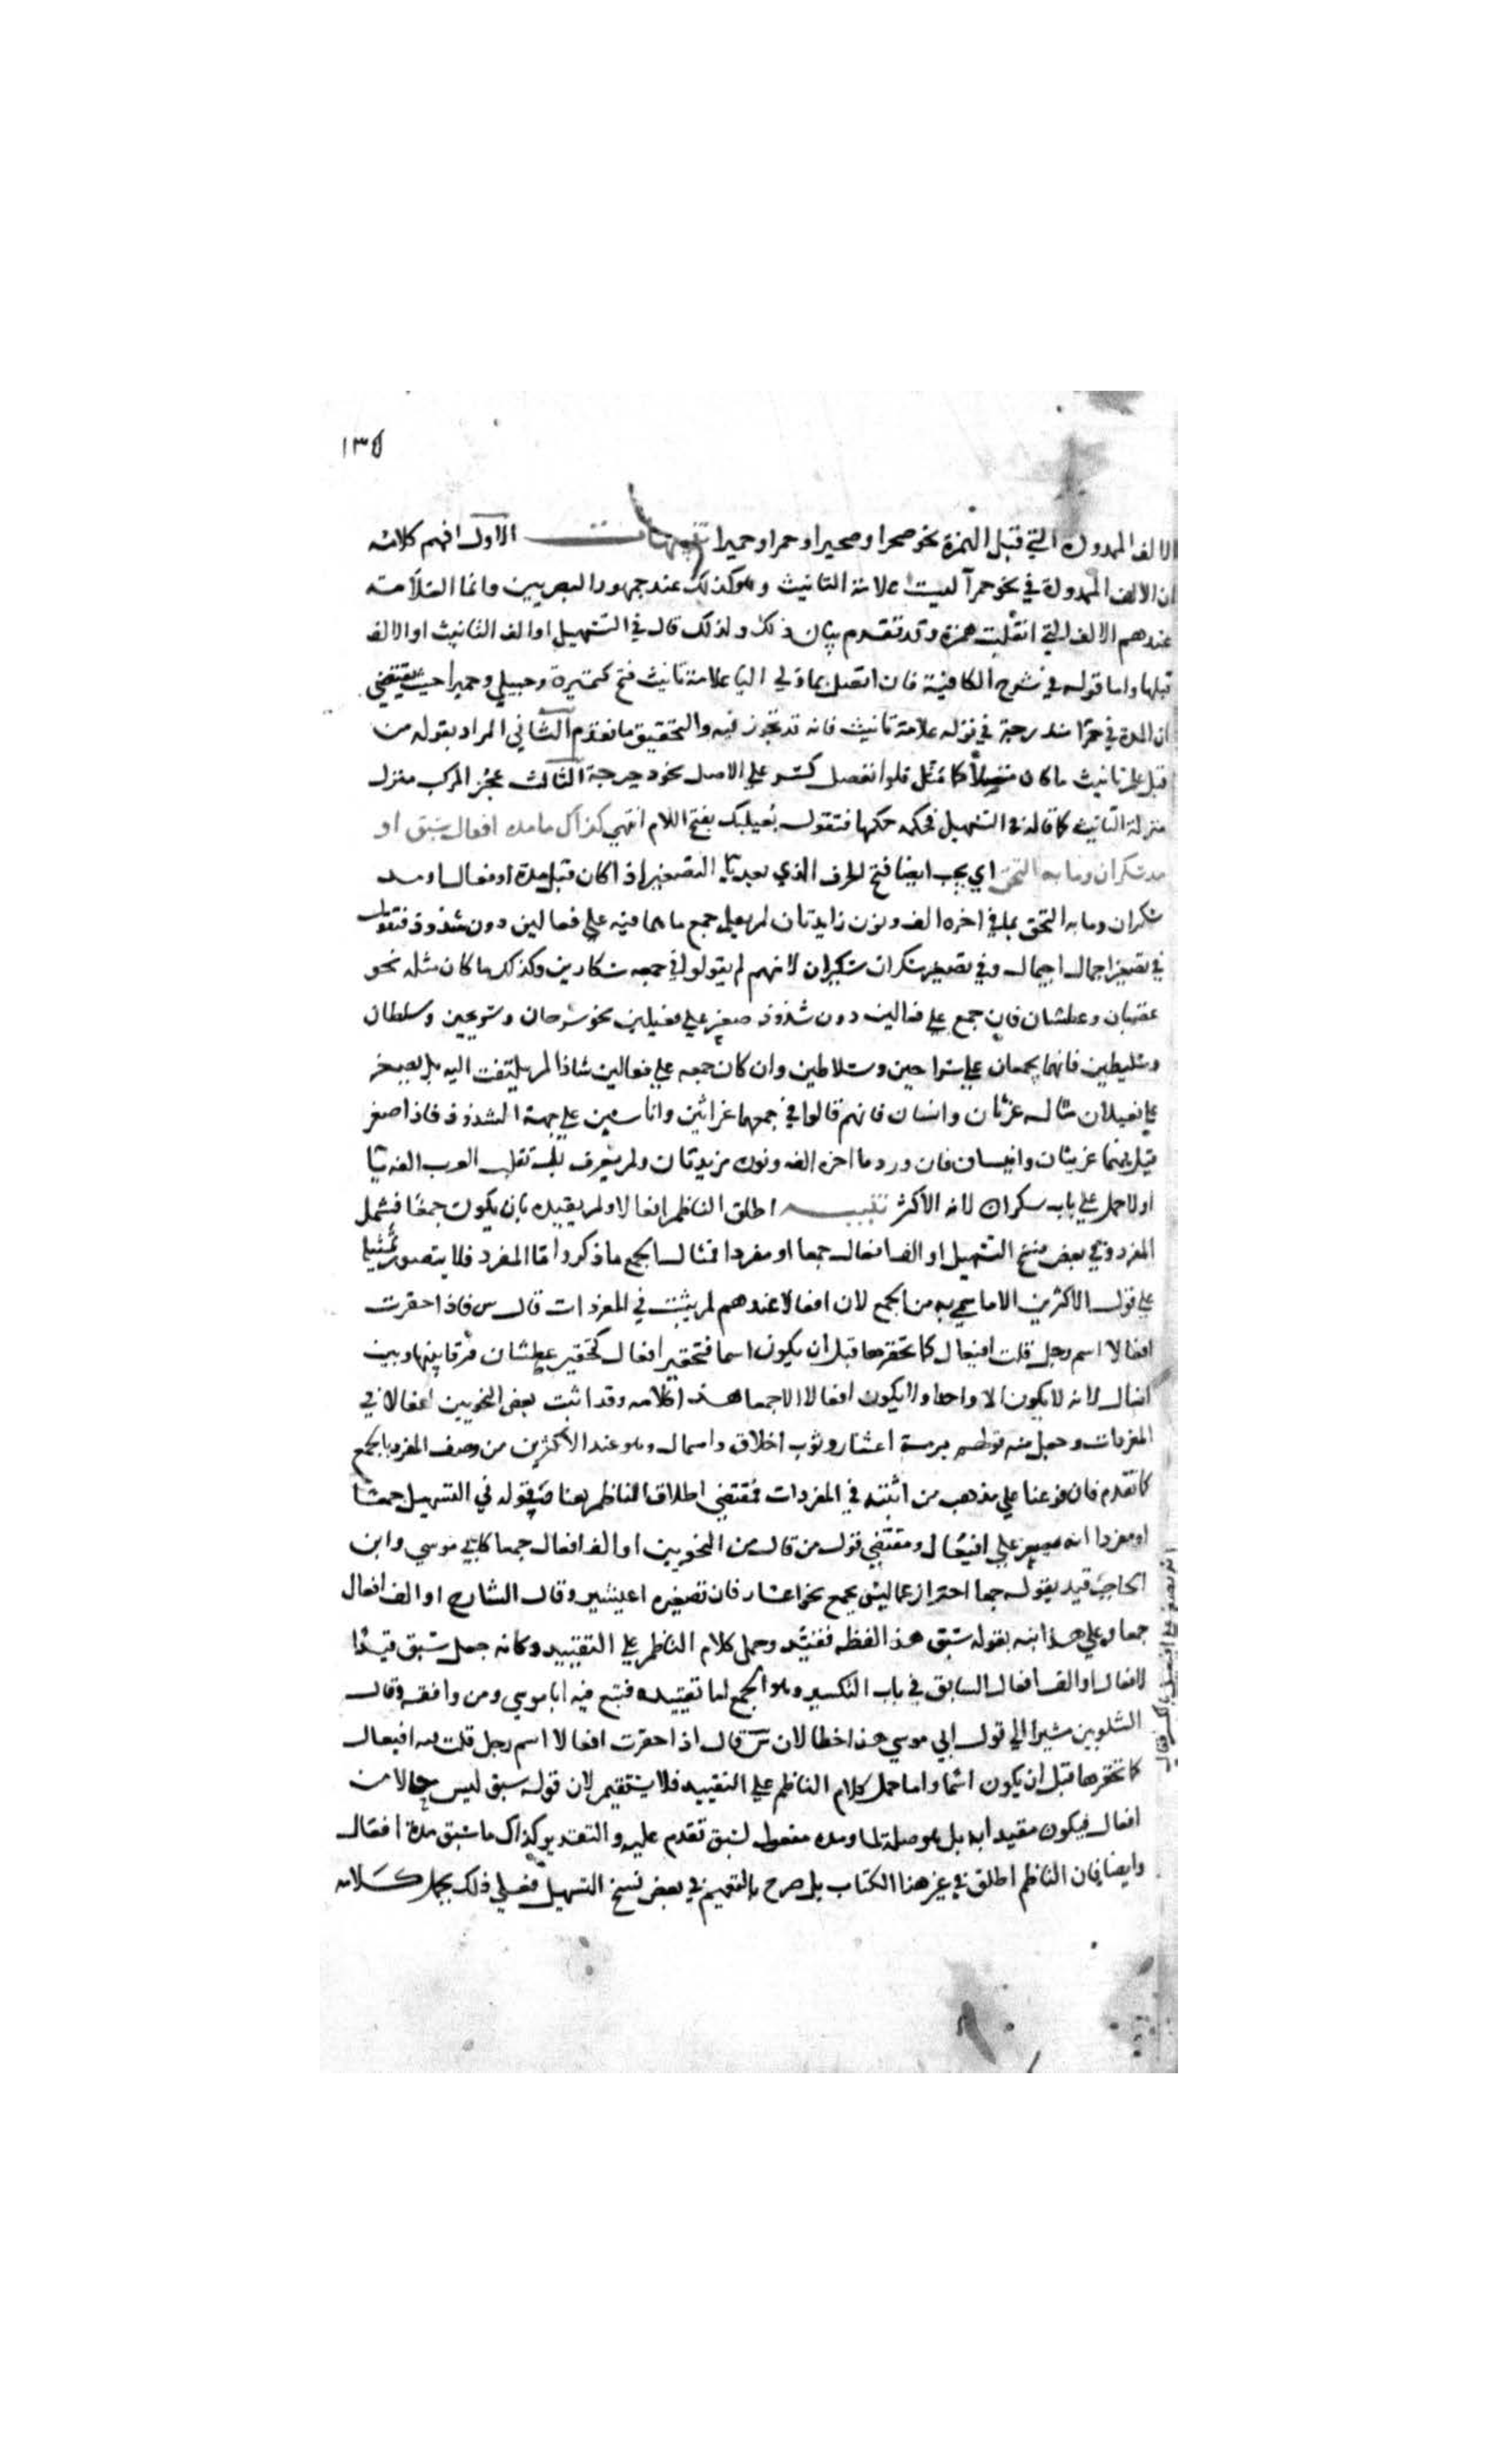 ١٣٥
الالف الممدودة التي قبل الهمزة نحو صحرا وصحيرا وحمرا وحميرا تنبيهات الاول افهم كلامه
ان الالف الممدودة في نحو حمرآ ليست علامة التانيث وهو كذلك عند جمهور البصريين وانما العلامة
عندهم الالف التي انقلبت همزة وقد تقدم بيان ذلك ولذلك قال في التسهيل او الف التانيث او الالف
قبلها واما قوله في شرح الكافية فان اتصل بما ولي اليا علامة تانيث فتح كتميرة وحبيلي وحميرا حيث يقتضي
ان المدة في حمرا مندرجة في قوله علامة تانيث فانه قد تجوز فيه والتحقيق ما تقدم الثاني المراد بقوله من
قبل علم تانيث ما كان متصلا كما مثل فلو انفصل كسر علي الاصل نحو دحيرجة الثالث عجز المركب منزل
منزلة التانيث كما قاله في التسهيل فحكمه حكمها فتقول بعيلبك بفتح اللام انتهي كذاك ما مدة افعال سبق او
مد سكران وما به التحق اي يجب ايضا فتح الحرف الذي بعد يا التصغير اذا كان قبل مدة افعال او مد
سكران وما به التحق مما في اخره الف ونون زايدتان لم يعلم جمع ما هما فيه علي فعالين دون شذوذ فتقول
في تصغير اجمال اجيمال وفي تصغير سكران سكيران لانهم لم يقولوا في جمعه سكارين وكذلك ما كان مثله نحو
غضبان وعطشان فان جمع علي فعالين دون شذوذ صغر علي فعيلين نحو سرحان وسريحين وسلطان
وسليطين فانهما يجمعان علي سراحين وسلاطين وان كان جمعه علي فعالين شاذا لم يلتفت اليه بل يصغر
علي فعيلان مثاله غرثان وانسان فانهم قالوا في جمعهما غراثين واناسين علي جهة الشذوذ فاذا صغر
قيل فيهما غريثان وانيسان فان ورد ما اخره الف ونون مزيدتان ولم يعرف هل تقلب العرب الفه يا
اولا حمل علي باب سكران لانه الاكثر تنبيه اطلق الناظم افعالا ولم يقيده بان يكون جمعا فشمل
المفرد وفي بعض نسخ التسهيل او الف افعال جمعا او مفردا فمثال الجمع ما ذكر واما المفرد فلا يتصور تمثيله
علي قول الاكثرين الا ما سمي به من الجمع لان افعالا عندهم لم يثبت في المفردات قال س فاذا حقرت
افعالا اسم رجل قلت افيعال كما تحقرها قبل ان يكون اسما فتحقير افعال كتحقير عطشان فرقا بينها وبين
افعال لانه لا يكون الا واحدا ولا يكون افعالا الا جمعا هذا كلامه وقد اثبت بعض النحويين افعالا في
المفردات وجعل منه قولهم برمة اعشار وثوب اخلاق واسمال وهو عند الاكثرين من وصف المفرد بالجمع
كما تقدم فان فرعنا علي مذهب من اثبته في المفردات فمقتضي اطلاق الناظم هنا وقوله في التسهيل جمعا
او مفردا انه يصغر علي افيعال ومقتضي قول من قال من النحويين او الف افعال جمعا كابي موسي وابن
الحاجب قيد بقوله جمعا احترازا عما ليس بجمع نحو اعشار فان تصغيره اعيشير وقال الشارح او الف افعال
جمعا وعلي هذا نبه بقوله سبق هذا لفظه فقيد وحمل كلام الناظم علي التقييد وكانه جعل سبق قيدا
لافعال او الف افعال السابق في باب التكسير وهو الجمع اما تقييده فتبع فيه ابا موسي ومن وافقه وقال
الشلوبين مشيرا الي قول ابي موسي هذا خطا لان س قال اذا حقرت افعالا اسم رجل قلت فيه افيعال
كما تحقرها قبل ان يكون اسما واما حمل كلام الناظم علي التقييد فلا يستقيم لان قوله سبق ليس حالا من
افعال فيكون مقيدا به بل هو صلة لما ومدة مفعول لسبق تقدم عليه والتقدير كذاك ما سبق مدة افعال
وايضا فان الناظم اطلق في غير هذا الكتاب بل صرح بالتعميم في بعض نسخ التسهيل فعلي ذلك يحمل كلامه